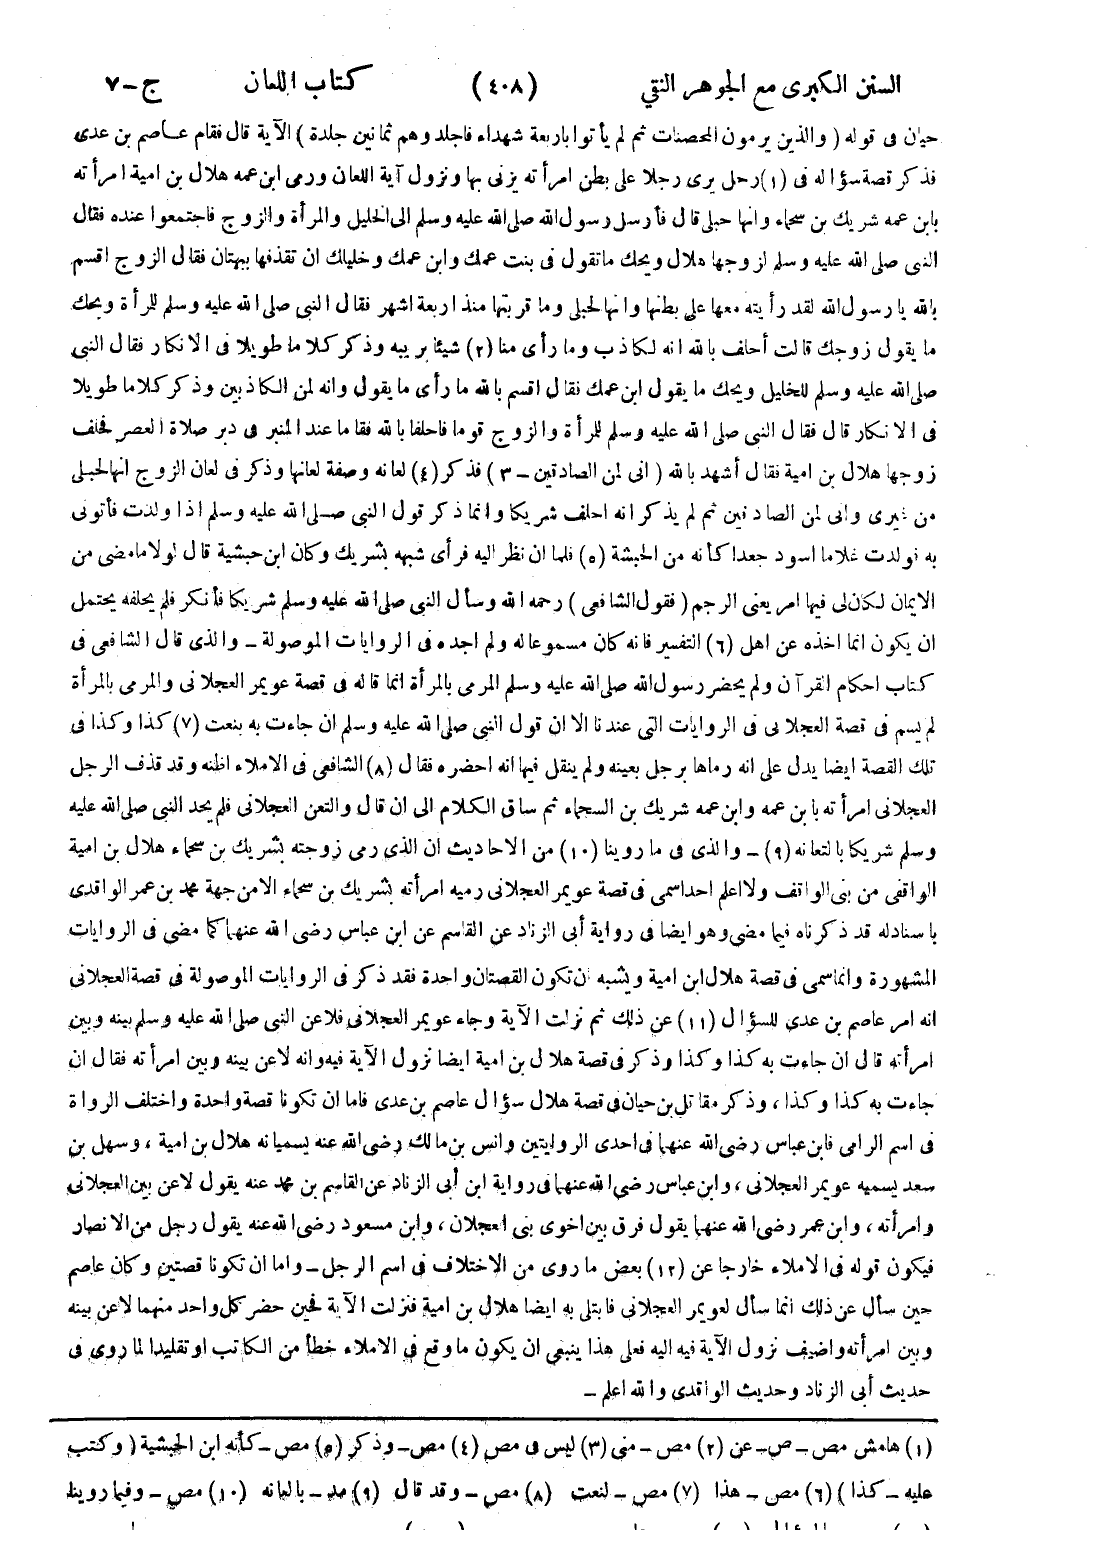 السنن الكبرى مع الجوهر النقي (٤٠٨) كتاب اللعان ج-٧
حيان فى قوله ( والذين يرمون المحصنات ثم لم يأتوا باربعة شهداء فاجلدوهم ثمانين جلدة ) الآية قال فقام عاصم بن عدى
فذكر قصة سؤاله فى (١) رجل يرى رجلا على بطن امرأته يزنى بها ونزول آية اللعان ورمى ابن عمه هلال بن امية امرأته
بابن عمه شريك بن سحماء وانها حبلى قال فأرسل رسول الله صلى الله عليه وسلم الى الخليل والمرأة والزوج فاجتمعوا عنده فقال
النبى صلى الله عليه وسلم لزوجها هلال ويحك ماتقول فى بنت عمك وابن عمك وخليلك ان تقذفها ببهتان فقال الزوج اقسم
بالله يا رسول الله لقد رأيته معها على بطنها وانها لحبلى وما قربتها منذ اربعة اشهر فقال النبى صلى الله عليه وسلم للمرأة ويحك
ما يقول زوجك قالت أحلف بالله انه لكاذب وما رأى منا (٢) شيئا يريبه وذكر كلاما طويلا فى الانكار فقال النبى
صلى الله عليه وسلم للخليل ويحك ما يقول ابن عمك فقال اقسم بالله ما رأى ما يقول وانه لمن الكاذبين وذكر كلاما طويلا
فى الانكار قال فقال النبى صلى الله عليه وسلم للمرأة والزوج قوما فاحلفا بالله فقاما عند المنبر فى دبر صلاة العصر فحلف
زوجها هلال بن امية فقال أشهد بالله ( انى لمن الصادقين - ٣ ) فذكر (٤) لعانه وصفة لعانها وذكر فى لعان الزوج انها لحبلى
من غيرى وانى لمن الصادقين ثم لم يذكر انه احلف شريكا وانما ذكر قول النبى صلى الله عليه وسلم اذا ولدت فأتونى
به فولدت غلاما اسود جعدا كأنه من الحبشة (٥) فلما ان نظر اليه فرأى شبهه بشريك وكان ابن حبشية قال لولا مامضى من
الايمان لكان لى فيها امر يعنى الرجم ( فقول الشافعى ) رحمه الله وسأل النبى صلى الله عليه وسلم شريكا فأنكر فلم يحلفه يحتمل
ان يكون انما اخذه عن اهل (٦) التفسير فانه كان مسموعا له ولم اجده فى الروايات الموصولة - والذى قال الشافعى فى
كتاب احكام القرآن ولم يحضر رسول الله صلى الله عليه وسلم المرمى بالمرأة انما قاله فى قصة عويمر العجلانى والمرمى بالمرأة
لم يسم فى قصة العجلانى فى الروايات التى عندنا الا ان قول النبى صلى الله عليه وسلم ان جاءت به بنعت (٧) كذا وكذا فى
تلك القصة ايضا يدل على انه رماها برجل بعينه ولم ينقل فيها انه احضره فقال (٨) الشافعى فى الاملاء اظنه وقد قذف الرجل
العجلانى امرأته بابن عمه وابن عمه شريك بن السحماء ثم ساق الكلام الى ان قال والتعن العجلانى فلم يحد النبى صلى الله عليه
وسلم شريكا بالتعانه (٩) - والذى فى ما روينا (١٠) من الاحاديث ان الذى رمى زوجته بشريك بن سحماء هلال بن امية
الواقفى من بنى الواقف ولا اعلم احدا سمى فى قصة عويمر العجلانى رميه امرأته بشريك بن سحماء الا من جهة محمد بن عمر الواقدى
باسناد له قد ذكرناه فيما مضى وهو ايضا فى رواية أبى الزناد عن القاسم عن ابن عباس رضى الله عنهما كما مضى فى الروايات
المشهورة وانما سمى فى قصة هلال ابن امية ويشبه ان تكون القصتان واحدة فقد ذكر فى الروايات الموصولة فى قصة العجلانى
انه امر عاصم بن عدى للسؤال (١١) عن ذلك ثم نزلت الآية وجاء عويمر العجلانى فلاعن النبى صلى الله عليه وسلم بينه وبين
امرأته قال ان جاءت به كذا وكذا وذكر فى قصة هلال بن امية ايضا نزول الآية فيه وانه لاعن بينه وبين امرأته فقال ان
جاءت به كذا وكذا ، وذكر مقاتل بن حيان فى قصة هلال سؤال عاصم بن عدى فاما ان تكونا قصة واحدة واختلف الرواة
فى اسم الرامى فابن عباس رضى الله عنهما فى احدى الروايتين وانس بن مالك رضى الله عنه يسميانه هلال بن امية ، وسهل بن
سعد يسميه عويمر العجلانى ، وابن عباس رضى الله عنهما فى رواية ابن أبى الزناد عن القاسم بن محمد عنه يقول لاعن بين العجلانى
وامرأته ، وابن عمر رضى الله عنهما يقول فرق بين اخوى بنى العجلان ، وابن مسعود رضى الله عنه يقول رجل من الانصار
فيكون قوله فى الاملاء خارجا عن (١٢) بعض ما روى من الاختلاف فى اسم الرجل - واما ان تكونا قصتين وكان عاصم
حين سأل عن ذلك انما سأل لعويمر العجلانى فابتلى به ايضا هلال بن امية فنزلت الآية فحين حضر كل واحد منهما لاعن بينه
وبين امرأته واضيف نزول الآية فيه اليه فعلى هذا ينبغى ان يكون ما وقع فى الاملاء خطأ من الكاتب او تقليدا لما روى فى
حديث أبى الزناد وحديث الواقدى والله اعلم -
(١) هامش مص - ص - عن (٢) مص - منى (٣) ليس فى مص (٤) مص - وذكر (٥) مص - كأنه ابن الحبشية ( وكتب
عليه - كذا ) (٦) مص - هذا (٧) مص - لنعت (٨) مص - وقد قال (٩) مد - بالعانه (١٠) مص - وفيما روينا